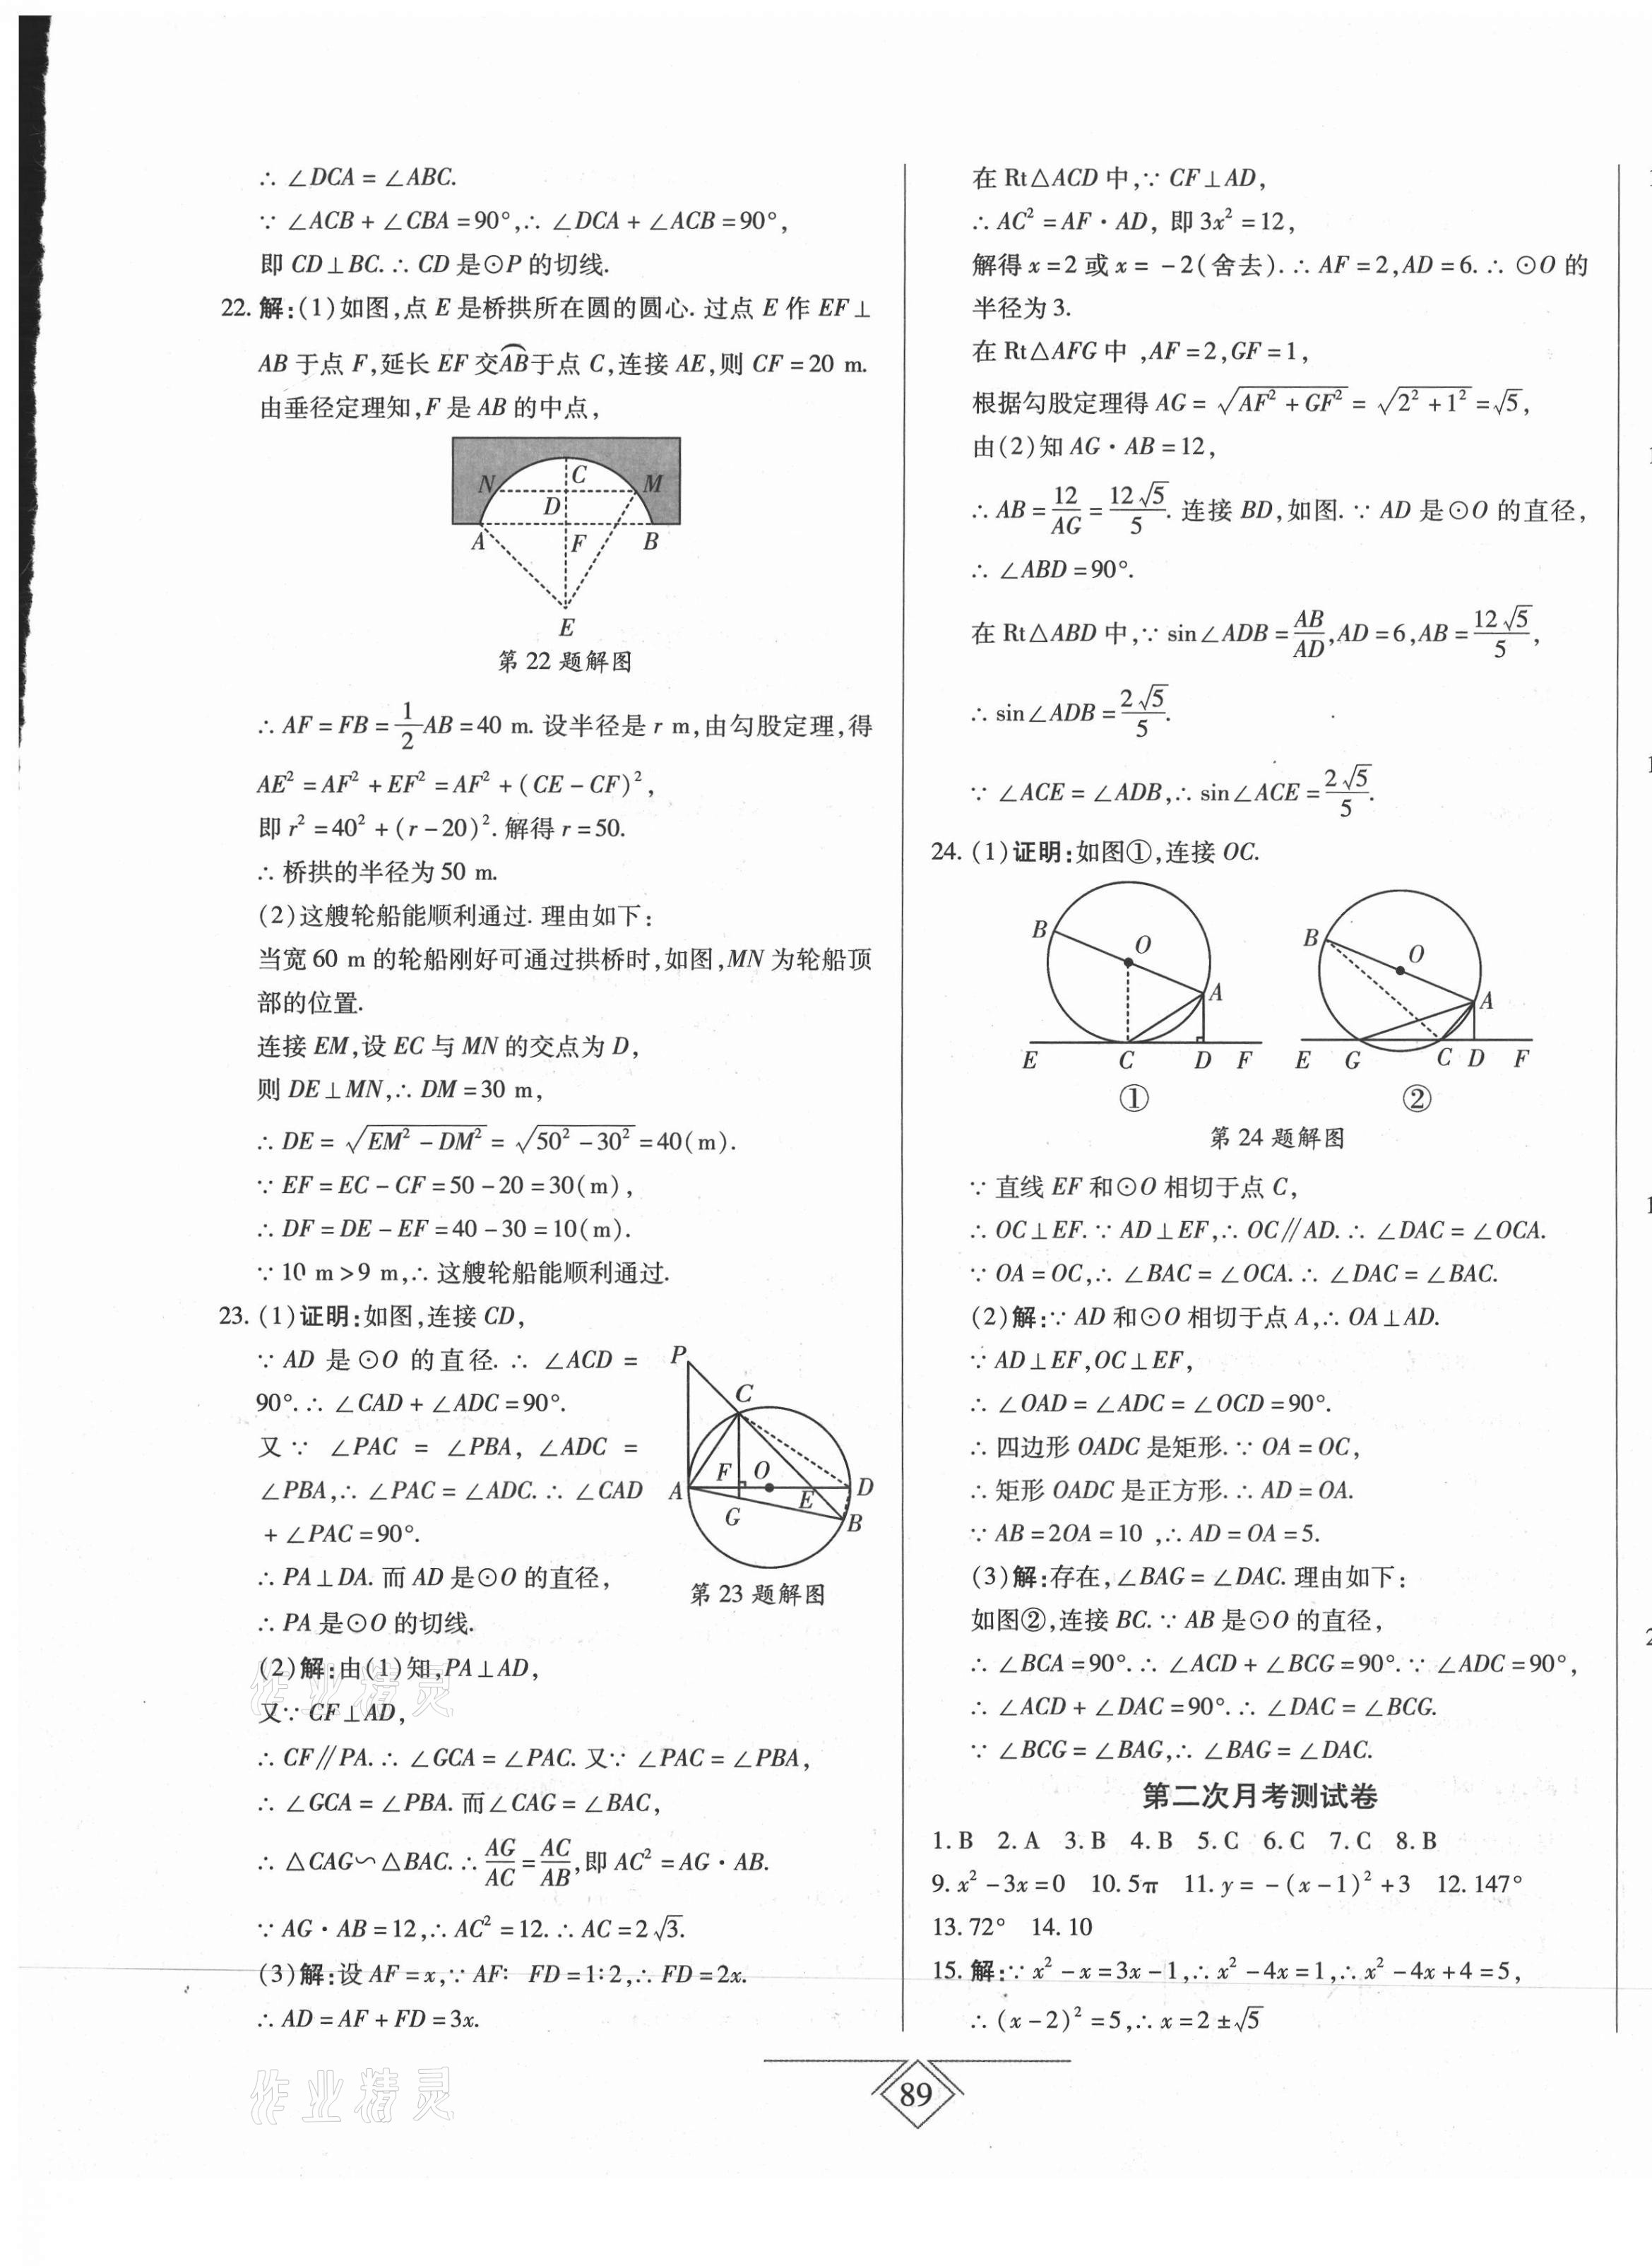 ∴ ∠DCA = ∠ABC.
∵ ∠ACB + ∠CBA = 90°,∴ ∠DCA + ∠ACB = 90°,
即 CD⊥BC.∴ CD 是⊙P 的切线.
22. 解:(1)如图,点 E 是桥拱所在圆的圆心. 过点 E 作 EF⊥
AB 于点 F,延长 EF 交⌒AB于点 C,连接 AE,则 CF = 20 m.
由垂径定理知,F 是 AB 的中点,
N C M
D
A F B
E
第 22 题解图
∴ AF = FB = 1/2 AB = 40 m. 设半径是 r m,由勾股定理,得
AE² = AF² + EF² = AF² + (CE − CF)²,
即 r² = 40² + (r − 20)². 解得 r = 50.
∴ 桥拱的半径为 50 m.
(2)这艘轮船能顺利通过. 理由如下:
当宽 60 m 的轮船刚好可通过拱桥时,如图,MN 为轮船顶
部的位置.
连接 EM,设 EC 与 MN 的交点为 D,
则 DE⊥MN,∴ DM = 30 m,
∴ DE = √(EM² − DM²) = √(50² − 30²) = 40(m).
∵ EF = EC − CF = 50 − 20 = 30(m),
∴ DF = DE − EF = 40 − 30 = 10(m).
∵ 10 m > 9 m,∴ 这艘轮船能顺利通过.
23. (1)证明:如图,连接 CD,
∵ AD 是 ⊙O 的直径. ∴ ∠ACD =
90°.∴ ∠CAD + ∠ADC = 90°.
又∵ ∠PAC = ∠PBA, ∠ADC =
∠PBA,∴ ∠PAC = ∠ADC.∴ ∠CAD
+ ∠PAC = 90°.
∴ PA⊥DA. 而 AD 是⊙O 的直径,
∴ PA 是⊙O 的切线.
P
C
F O
A E D
G B
第 23 题解图
(2)解:由(1)知,PA⊥AD,
又∵ CF⊥AD,
∴ CF∥PA.∴ ∠GCA = ∠PAC. 又∵ ∠PAC = ∠PBA,
∴ ∠GCA = ∠PBA. 而∠CAG = ∠BAC,
∴ △CAG∽△BAC.∴ AG/AC = AC/AB,即 AC² = AG·AB.
∵ AG·AB = 12,∴ AC² = 12.∴ AC = 2√3.
(3)解:设 AF = x,∵ AF: FD = 1:2,∴ FD = 2x.
∴ AD = AF + FD = 3x.
在 Rt△ACD 中,∵ CF⊥AD,
∴ AC² = AF·AD, 即 3x² = 12,
解得 x = 2 或 x = −2(舍去).∴ AF = 2,AD = 6.∴ ⊙O 的
半径为 3.
在 Rt△AFG 中 ,AF = 2,GF = 1,
根据勾股定理得 AG = √(AF² + GF²) = √(2² + 1²) = √5,
由(2)知 AG·AB = 12,
∴ AB = 12/AG = 12√5/5. 连接 BD,如图.∵ AD 是⊙O 的直径,
∴ ∠ABD = 90°.
在 Rt△ABD 中,∵ sin∠ADB = AB/AD,AD = 6,AB = 12√5/5,
∴ sin∠ADB = 2√5/5.
∵ ∠ACE = ∠ADB,∴ sin∠ACE = 2√5/5.
24. (1)证明:如图①,连接 OC.
B O A E C D F
①
B O A E G C D F
②
第 24 题解图
∵ 直线 EF 和⊙O 相切于点 C,
∴ OC⊥EF.∵ AD⊥EF,∴ OC∥AD.∴ ∠DAC = ∠OCA.
∵ OA = OC,∴ ∠BAC = ∠OCA.∴ ∠DAC = ∠BAC.
(2)解:∵ AD 和⊙O 相切于点 A,∴ OA⊥AD.
∵ AD⊥EF,OC⊥EF,
∴ ∠OAD = ∠ADC = ∠OCD = 90°.
∴ 四边形 OADC 是矩形.∵ OA = OC,
∴ 矩形 OADC 是正方形.∴ AD = OA.
∵ AB = 2OA = 10 ,∴ AD = OA = 5.
(3)解:存在,∠BAG = ∠DAC. 理由如下:
如图②,连接 BC.∵ AB 是⊙O 的直径,
∴ ∠BCA = 90°.∴ ∠ACD + ∠BCG = 90°.∵ ∠ADC = 90°,
∴ ∠ACD + ∠DAC = 90°.∴ ∠DAC = ∠BCG.
∵ ∠BCG = ∠BAG,∴ ∠BAG = ∠DAC.
第二次月考测试卷
1. B 2. A 3. B 4. B 5. C 6. C 7. C 8. B
9. x² − 3x = 0 10. 5π 11. y = −(x − 1)² + 3 12. 147°
13. 72° 14. 10
15. 解:∵ x² − x = 3x − 1,∴ x² − 4x = 1,∴ x² − 4x + 4 = 5,
∴ (x − 2)² = 5,∴ x = 2 ± √5
89
作业精灵
作业精灵